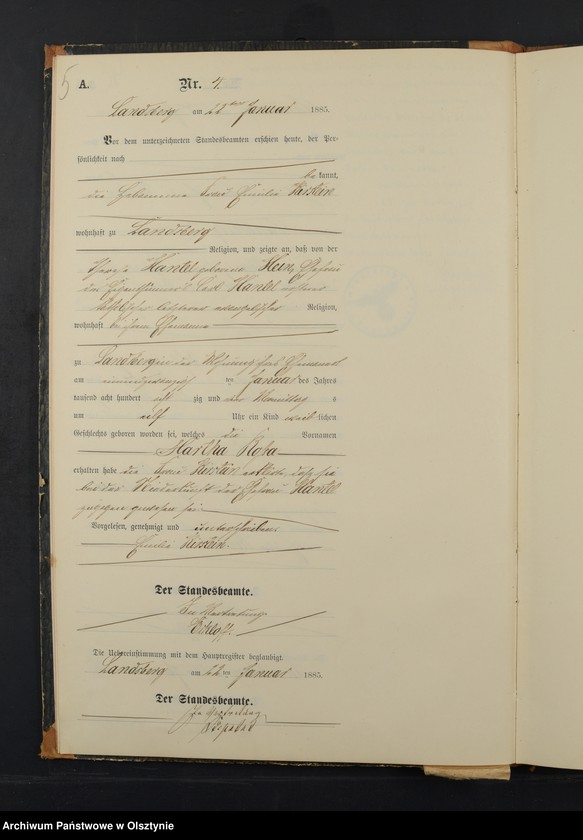 5
A. Nr. 4.
Landsberg am 22ten Januar 1885.
Vor dem unterzeichneten Standesbeamten erschien heute, der Per-
sönlichkeit nach
be kannt,
die Hebamme Frau Emilie Kirstein
wohnhaft zu Landsberg
Religion, und zeigte an, daß von der
Hantel geborene Hein, Ehefrau
des Eigenthümers Hantel
evangelischer Religion,
wohnhaft bei ihrem Ehemanne
zu Landsberg in der Wohnung ihres Ehemanns
am ten Januar des Jahres
tausend acht hundert acht zig und Vormittags
um elf Uhr ein Kind weib lichen
Geschlechts geboren worden sei, welches die Vornamen
Martha Rosa
erhalten habe die Frau Kirstein erklärte, daß sie
bei der Niederkunft der Ehefrau Hantel
zugegen gewesen sei.
Vorgelesen, genehmigt und unterschrieben
Emilie Kirstein.
Der Standesbeamte.
In Vertretung
Die Uebereinstimmung mit dem Hauptregister beglaubigt.
Landsberg am 22ten Januar 1885.
Der Standesbeamte.
In Vertretung
Archiwum Państwowe w Olsztynie